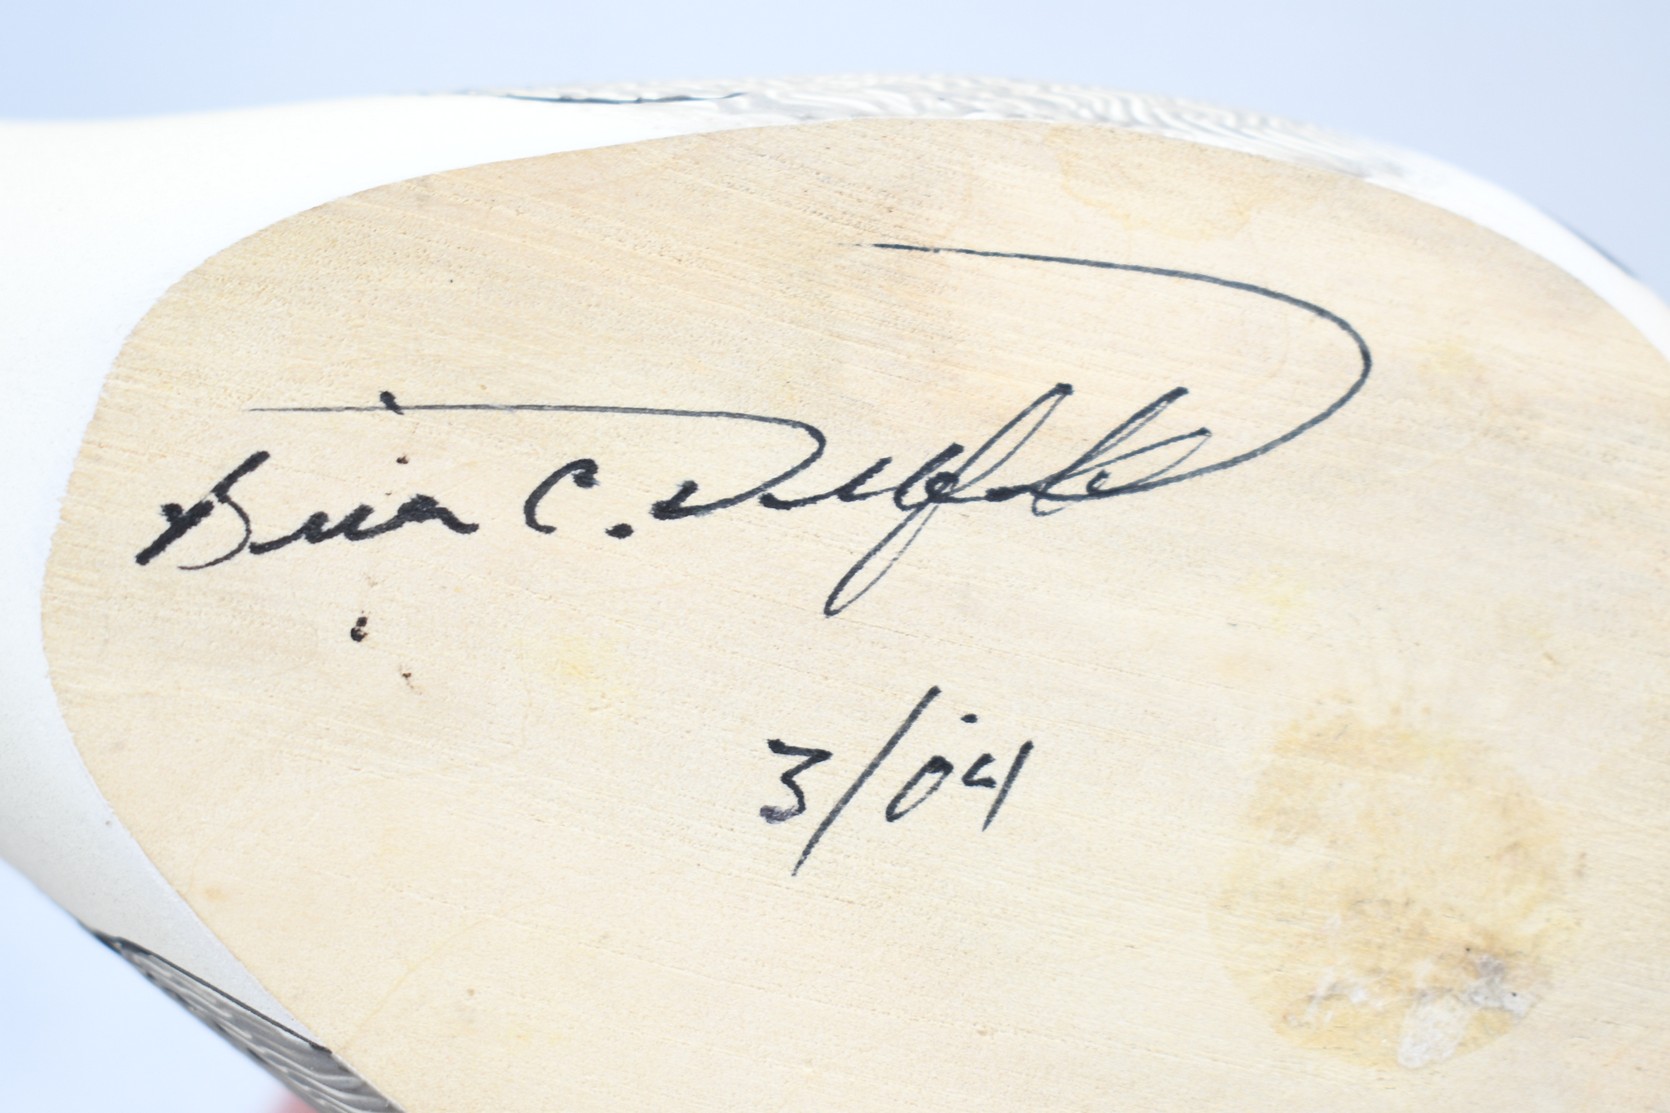 Brian C.
3/04